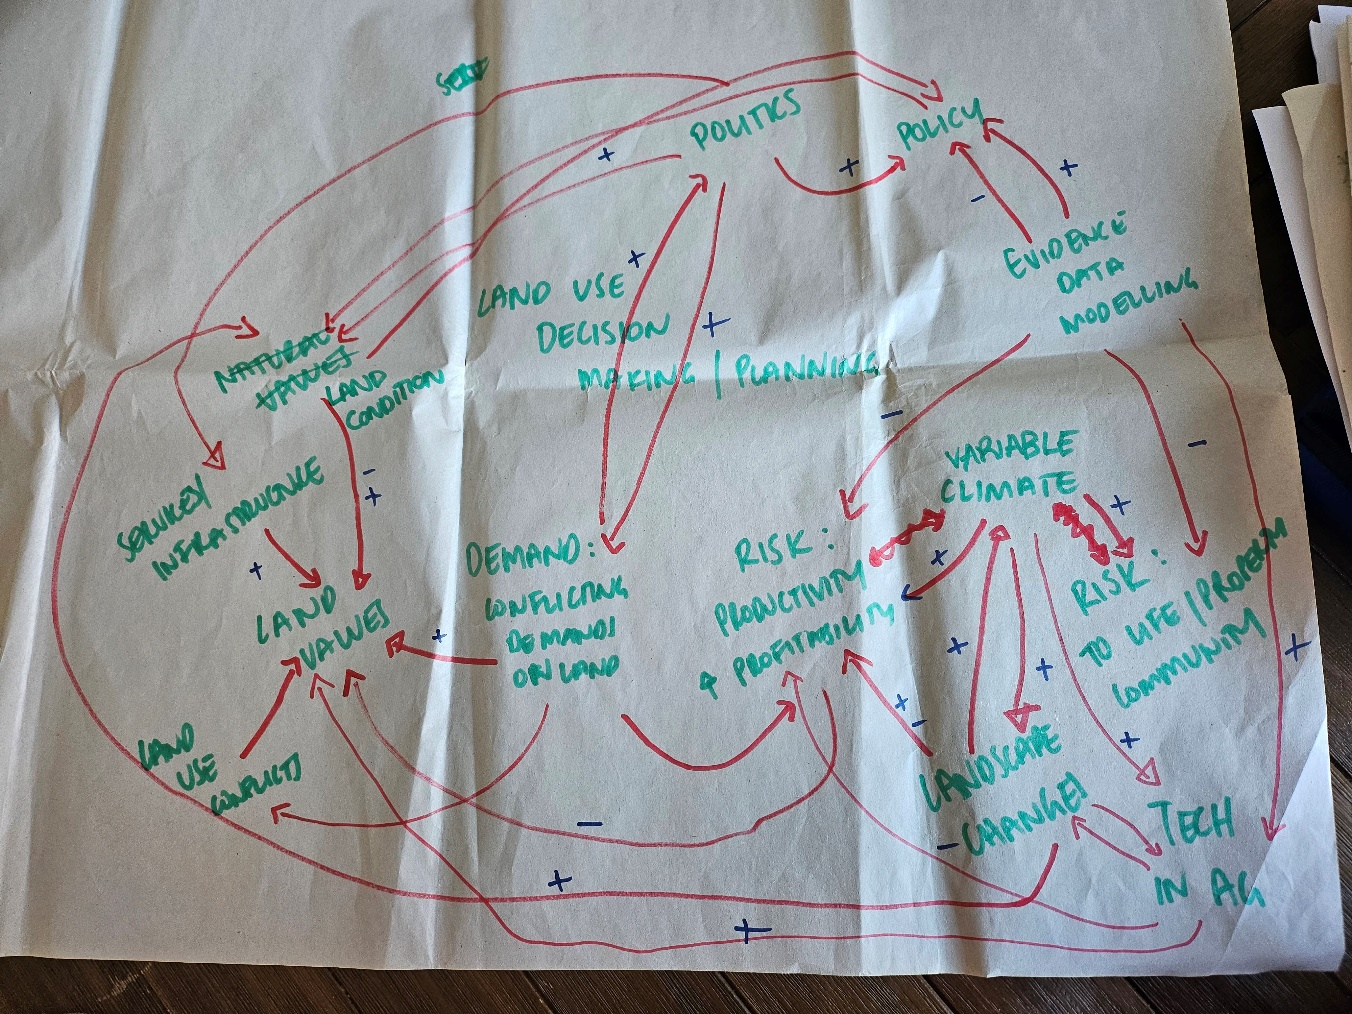 POLITICS
POLICY
+
+
+
-
EVIDENCE
DATA
MODELLING
LAND USE
DECISION
MAKING / PLANNING
+
+
NATURAL
VALUES
LAND
CONDITION
-
-
-
+
VARIABLE
CLIMATE
+
INFRASTRUCTURE
+
LAND
VALUES
+
DEMAND:
CONFLICTING
DEMANDS
ON LAND
RISK:
PRODUCTIVITY
PROFITABILITY
+
RISK:
TO LIFE / PROPERTY
COMMUNITY
+
+
+
+
-
+
LAND
USE
CONFLICTS
LANDSCAPE
- CHANGES
TECH
IN AG
-
+
+